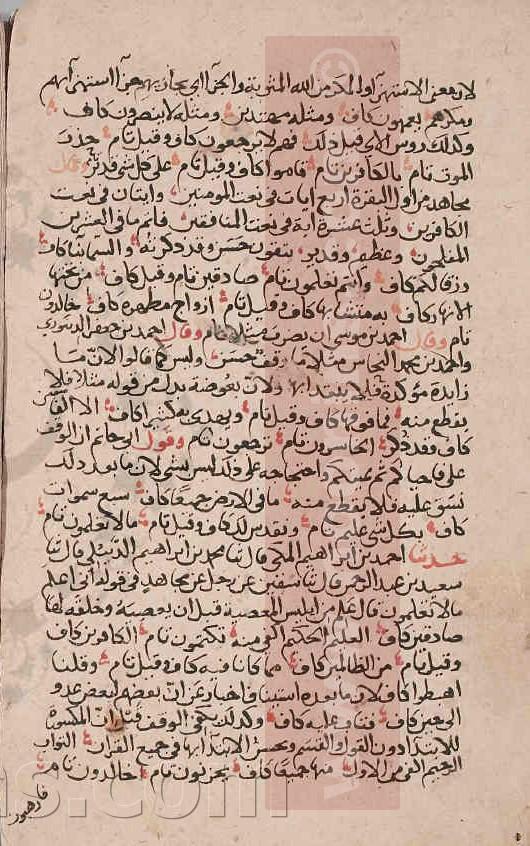 لان معنى الاستهزا والمكر من الله المثوبة والجزا اي يجازيهم جزا استهزايهم
ومكرهم يعمهون كاف ومثله مهتدين ومثله لا يبصرون كاف
وكذلك روس الاي قبل ذلك فهم لا يرجعون كاف وقيل تام حذر
الموت تام بالكافرين تام قاموا كاف وقيل تام على كل شي قدير تام وقال
مجاهد من اول البقرة اربع ايات في نعت المومنين وايتان في نعت
الكافرين وثلث عشرة اية في نعت المنافقين فاتم ما في العشرين
المفلحون وعظيم وقدير يتقون حسن وقد ذكرته والسما بنا كاف
رزقا لكم كاف وانتم تعلمون تام صادقين تام وقيل كاف من تحتها
الانهار كاف به متشابها كاف وقيل تام ازواج مطهره كاف خالدون
تام وقال احمد بن موسى ان يضرب مثلا تام وقال احمد بن جعفر الدينوري
واحمد بن محمد النحاس مثلا ما وقف حسن وليس كما قالا لان ما
زايدة موكدة فلا يبتدا بها ولان بعوضة بدل من قوله مثلا فلا
يقطع منه فما فوقها كاف وقيل تام ويهدي به كثيرا كاف الا الفاسقين
كاف وقد ذكر الخاسرون تام ترجعون تام وقول ابي حاتم ان الوقف
على فاحياكم ثم يميتكم واحتجاجه على ذلك ليس بشي لان ما بعد ذلك
نسق عليه فلا يقطع منه ما في الارض جميعا كاف سبع سموات
كاف بكل شي عليم تام ونقدس لك كاف وقيل تام ما لا تعلمون تام
حدثنا احمد بن ابراهيم المكي قال نا محمد بن ابراهيم الديبلي قال نا
سعيد بن عبد الرحمن قال نا سفين عن رجل عن مجاهد في قوله اني اعلم
ما لا تعلمون قال علم من ابليس المعصية قبل ان يعصيه وخلقه لها
صادقين كاف العليم الحكيم اكفى منه تكتمون تام الكافرين كاف
وقيل تام من الظالمين كاف مما كانا فيه كاف وقيل تام وقلنا
اهبطوا كاف لان ما بعده استيناف اخبار عن ان بعضهم لبعض عدو
الى حين كاف فتاب عليه كاف وكذلك يكفي الوقف قبل ان المكسورة
للابتدا دون القول والقسم ويحسن الابتدا بها في جميع القران التواب
الرحيم اكفى من الاول منها جميعا كاف يحزنون تام خالدون تام
فارهبون